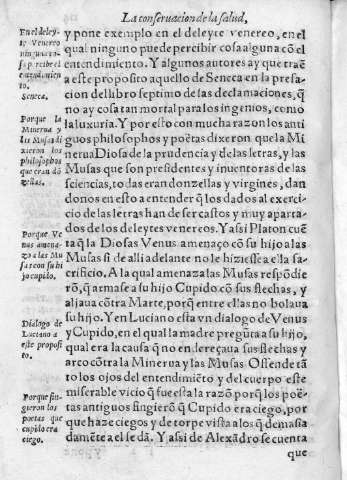 La conseruacion de la salud,
En el deley
te Venereo
ninguno co
sa percibe el
entendimien
to.
Seneca.
Porque la
Minerua y
las Musas di
xeron los
philosophos
que eran dõ
zellas.
Porque Ve
nus amena-
zo a las Mu
sas con su hi
jo cupido.
Dialogo de
Luciano a
este proposi
to.
Porque fin-
gieron los
poetas que
cupido era
ciego.
y pone exemplo en el deleyte venereo, en el
qual ninguno puede percibir cosa alguna cõ el
entendimiento. Y algunos autores ay que traẽ
a este proposito aquello de Seneca en la presa-
cion del libro septimo de las declamaciones, q̃
no ay cosa tan mortal para los ingenios, como
la luxuria. Y por esto con mucha razon los anti
guos philosophos y poëtas dixeron que la Mi
nerua Diosa de la prudencia y de las letras, y las
Musas que son presidentes y inuentoras de las
sciencias, todas eran donzellas y virgines, dan
donos en esto a entender q̃ los dados al exerci
cio de las letras han de ser castos y muy aparta-
dos de los deleytes venereos. Y assi Platon cuẽ
ta q̃ la Diosas Venus amenaço cõ su hijo a las
Musas si de alli adelante no le hiziesse ella sa-
crificio. A la qual amenaza las Musas respõdie
rõ, q̃ armase a su hijo Cupido cõ sus flechas, y
aljaua cõtra Marte, porq̃ entre ellas no bolaua
su hijo. Y en Luciano esta vn dialogo de Venus
y Cupido, en el qual la madre pregũta a su hijo,
qual era la causa q̃ no endereçaua sus flechas y
arco cõtra la Minerua y las Musas. Offende tã
to los ojos del entendimiẽto y del cuerpo este
miserable vicio q̃ fue esta la razõ porq̃ los poë-
tas antiguos fingierõ q̃ Cupido era ciego, por
que haze ciegos y de torpe vista a los q̃ demasia
damẽte a el se dã. Y assi de Alexãdro se cuenta
que